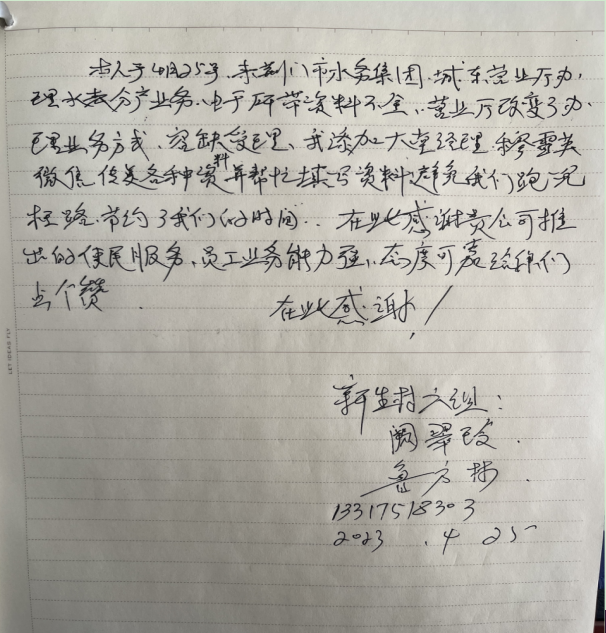 本人于4月25号,来荆门市水务集团.城东营业厅办
理水表分户业务.由于所带资料不全,营业厅改变了办
理业务方式,容缺受理、我添加大堂经理
微信传发各种资料并帮忙填写资料避免我们跑冤
枉路.节约了我们的时间..在此感谢贵公司推
出的便民服务,员工业务能力强,态度可嘉给你们
点个赞.
在此感谢!
新生村六组:
阙翠
鲁方
13317518303
2023.4 25
LET IDEAS FLY